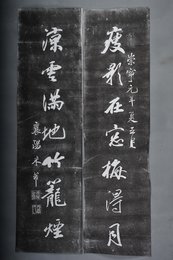 瘦影在窓梅得月
崇寧元年夏五月
涼雲滿地竹籠煙
襄陽米芾